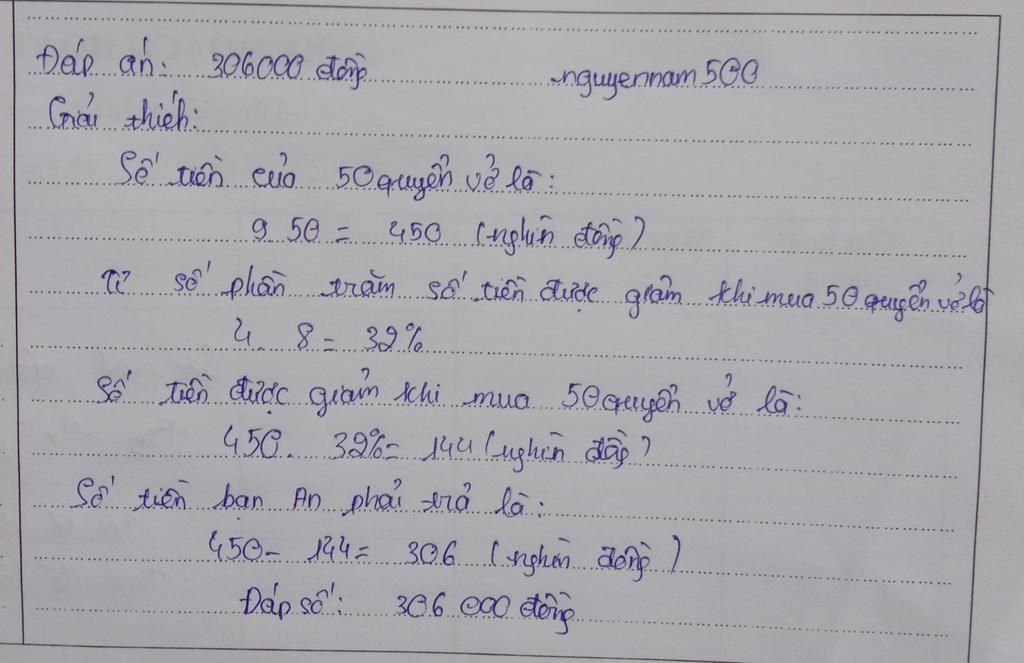 Đáp án: 306000 đồng nguyennam500
Giải thích:
Số tiền của 50 quyển vở là:
9. 50 = 450 (nghìn đồng)
Tỉ số phần trăm số tiền được giảm khi mua 50 quyển vở là
4. 8 = 32%
Số tiền được giảm khi mua 50 quyển vở là:
450. 32% = 144 (nghìn đồng)
Số tiền bạn An phải trả là:
450 - 144 = 306 (nghìn đồng)
Đáp số: 306 000 đồng